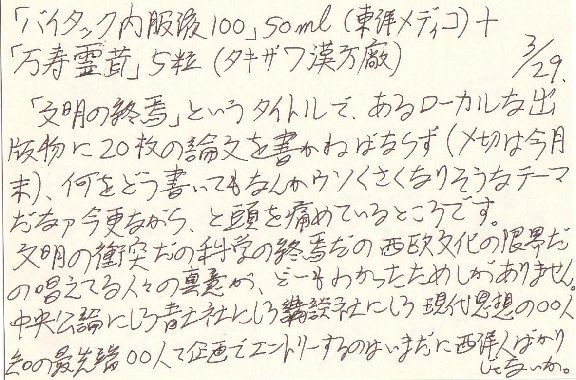 「バイタック内服液100」50ml (東洋メディコ)+
「万寿霊茸」5粒(タキザワ漢方廠)
3/29.
「文明の終焉」というタイトルで、あるローカルな出
版物に20枚の論文を書かねばならず(〆切は今月
末)、何をどう書いてもなんかウソくさくなりそうなテーマ
だなァ今更ながら、と頭を痛めているところです。
文明の衝突だの科学の終焉だの西欧文化の限界だ
の唱えてる人々の真意が、どーもわかったためしがありません。
中央公論にしろ青土社にしろ講談社にしろ 現代思想の00人
知の最先端00人て企画でエントリーするのはいまだに西洋人ばかり
じゃないか。